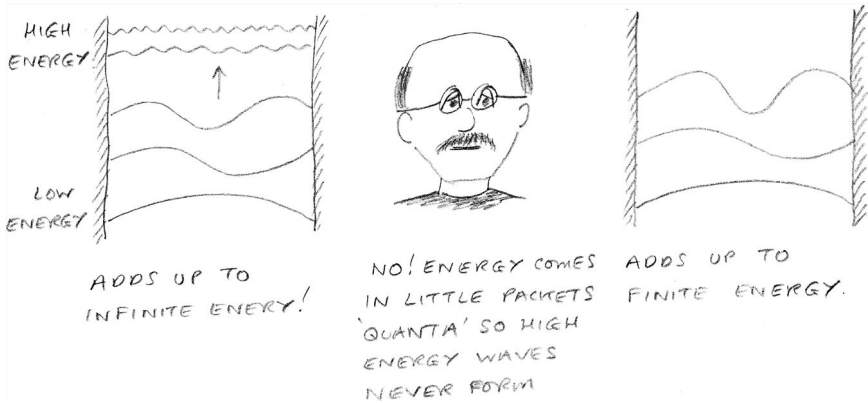 HIGH
ENERGY
LOW
ENERGY
ADDS UP TO
INFINITE ENERY!
NO! ENERGY COMES
IN LITTLE PACKETS
'QUANTA' SO HIGH
ENERGY WAVES
NEVER FORM
ADDS UP TO
FINITE ENERGY.